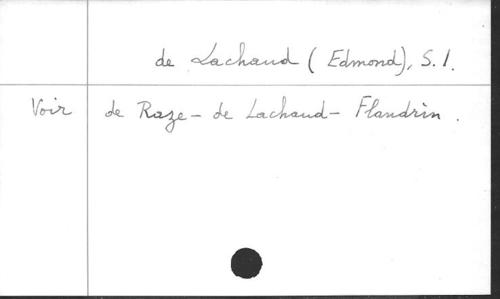 de Lachaud (Edmond), S. I.
Voir de Raze - de Lachaud - Flandrin.